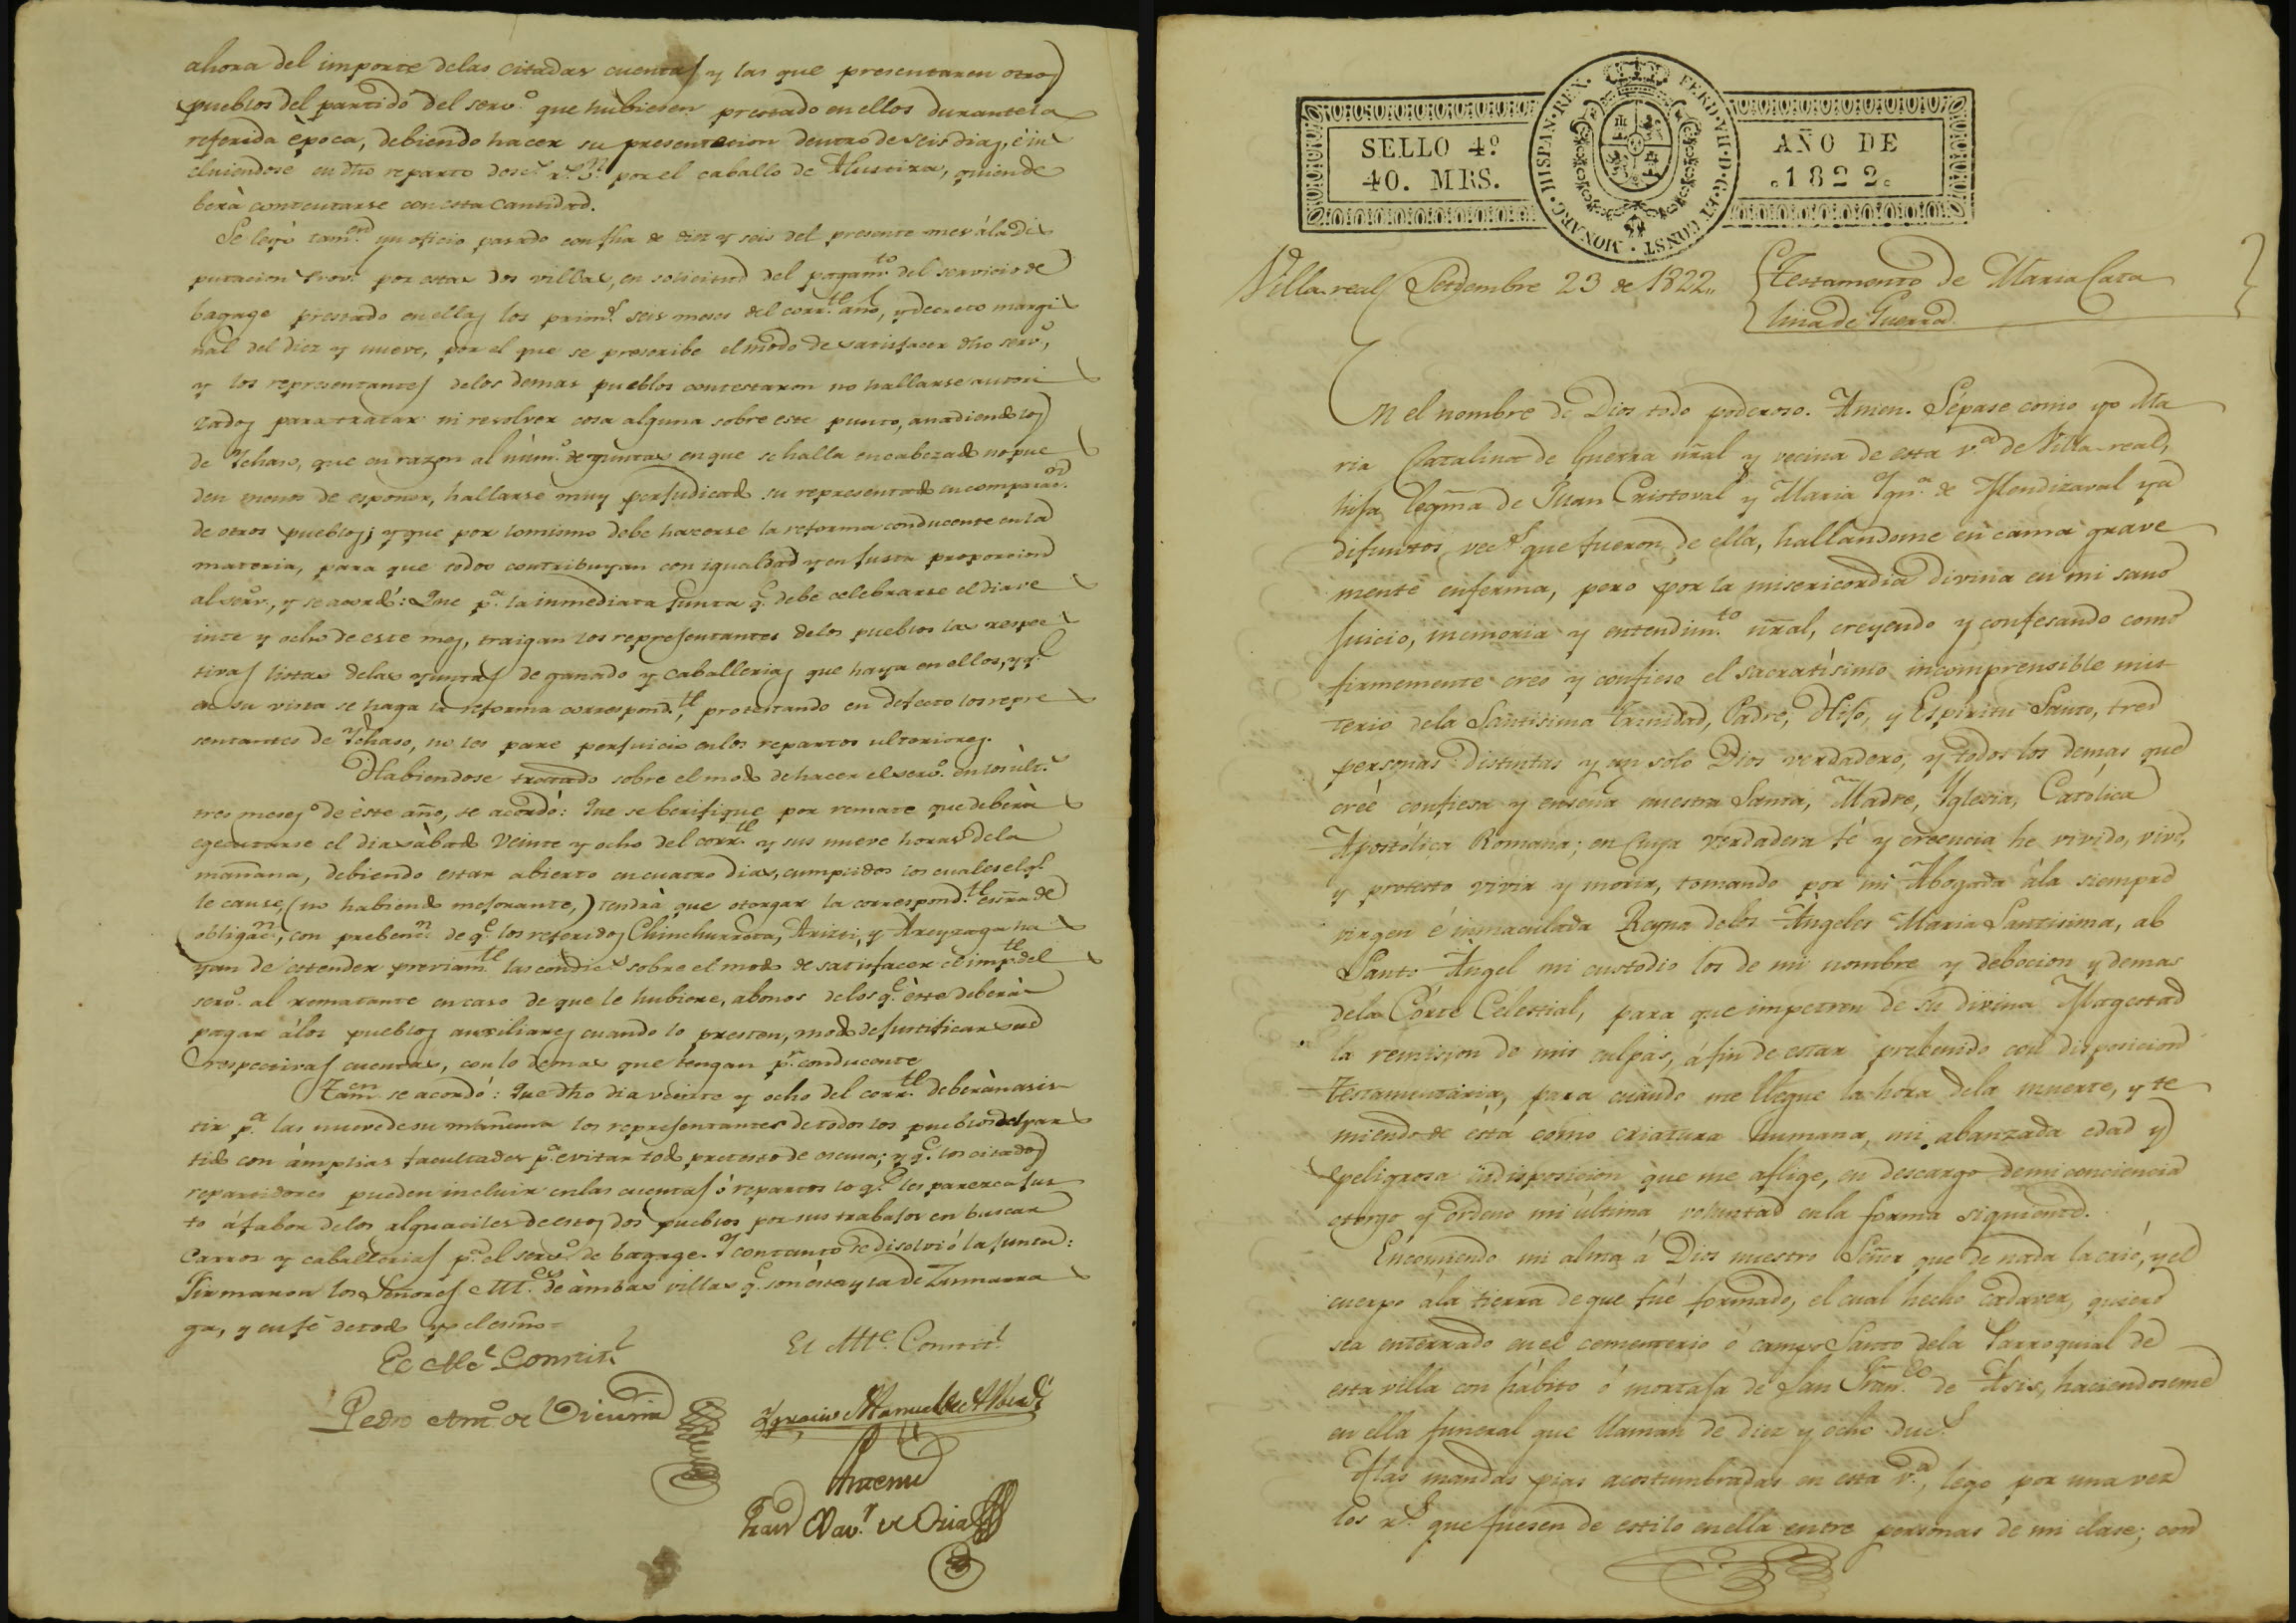 ahora del importe delas citadas cuentas y las que presentaren otros
pueblos del partido del serv.º que hubiesen prestado en ellos durante la
referida època, debiendo hacer su presentacion dentro de seis dias, è in
cluiendose en dho reparto por el caballo de Alustiza, quien de
berà contentarse con esta cantidad.
Se leyò tam.en un oficio pasado con fha de diez y seis del presente mes àla Di
putacion Prov.l por estas dos villas, en solicitud del pagam.to del servicio de
bagage prestado en ellas los prim.s seis meses del corr.te año, y decreto margi
nal del diez y nueve, por el que se prescribe el modo de satisfacer dho serv.º,
y los representantes delos demas pueblos contestaron no hallarse autori
zados para tratar ni resolver cosa alguna sobre este punto, añadiendo los
de Ychaso, que en razon al núm.º de yuntas en que se halla encabezado no pue
den menos de esponer, hallarse muy perjudicado su representado en comparac.on
de otros pueblos; y que por lo mismo debe hacerse la reforma conducente en la
materia, para que todos contribuyan con igualdad y en justa proporcion
al serv.º, y se acordó: Que p.a la inmediata junta q.e debe celebrarse el dia ve
inte y ocho de este mes, traigan los representantes delos pueblos las respec
tivas listas delas yuntas de ganado y caballerias que haya en ellos, y q.e
en su vista se haga la reforma correspond.te, protestando en defecto los repre
sentantes de Ychaso, no les pare perjuicio en los repartos ulteriores.
Habiendose tratado sobre el modo de hacer el serv.º en los últ.s
tres meses de èste año, se acordó: Que se berifique por remate que deberà
egecutarse el dia sàbado veinte y ocho del corr.te y sus nueve horas dela
mañana, debiendo estar abierto en cuatro dias, cumplidos los cuales el q.e
le cause, (no habiendo mejorante,) tendrà que otorgar la correspond.te esrra de
obligac.n, con prebenc.n de q.e los referidos Chinchurreta, Arizti, y Areyzaga ha
yan de estender previam.te las condic.s sobre el modo de satisfacer el imp.te del
serv.º al rematante en caso de que le hubiere, abonos delos q.e èste deberà
pagar àlos pueblos ausiliares cuando lo presten, modo de justificar sus
respectivas cuentas, con lo demas que tengan p.r conducente
Tam.en se acordó: Que dho dia veinte y ocho del corr.te deberàn asis
tir p.a las nueve de su mañana los representantes de todos los pueblos del par
tido con àmplias facultades p.a evitar todo pretesto de escusa; y q.e los citados
repartidores pueden incluir en las cuentas ó repartos lo q.e les parezca jus
to á fabor delos alguaciles de estos dos pueblos por sus trabajos en buscar
carros y caballerias p.a el serv.º de bagage. Y con tanto se disolvió la junta:
Firmaron los Señores Al.es de àmbas villas q.e son ésta y la de Zumarra
ga, y en fé de todo yo el esno =
El Alc.e Constit.l
El Alc.e Constit.l
Pedro Ant.º de
Ygnacio Manuel de
Ante mi
Fran.co Xav.r de Oria
SELLO 4º
40. MRS.
MONARC·HISPAN·REX· FERD·VII·D·G·ET CONST·
AÑO DE
1822.
Villa-real Setiembre 23 de 1822.
Testamento de Maria Cata
lina de Guerra
En el nombre de Dios todo poderoso. Amen. Sépase como yo Ma
ria Catalina de Guerra ñral y vecina de esta v.a de Villa-real,
hija legma de Juan Cristoval y Maria Ygn.a de Mendizaval ya
difuntos, vec.s que fueron de ella, hallandome en cama grave
mente enferma, pero por la misericordia divina en mi sano
juicio, memoria y entendim.to ñral, creyendo y confesando como
firmemente creo y confieso el sacratísimo incomprensible mis
terio dela Santisima Trinidad, Padre, Hijo, y Espiritu Santo, tres
personas distintas y un solo Dios verdadero, y todos los demas que
creé confiesa y enseña nuestra Santa, Madre, Yglesia, Católica
Apostólica Romana; en cuya verdadera fé y creencia he vivido, vivo,
y protesto vivir y morir, tomando por mi Abogada àla siempre
virgen é inmaculada Reyna delos Àngeles Maria Santisima, al
Santo Àngel mi custodio los de mi nombre y debocion y demas
dela Córte Célestial, para que impetren de su divina Magestad
la remision de mis culpas, á fin de estar prebenido con disposicion
testamentaria, para cuàndo me llegue la hora dela muerte, y te
miendo de ésta cómo criatura humana, mi abanzada edad y
peligrosa indisposicion que me aflige, en descargo de mi conciencia
otorgo y ordeno mi última voluntad en la forma siguiente.
Encomiendo mi alma á Dios nuestro Señor que de nada la crió, y el
cuerpo àla tierra de que fué formado, el cual hecho cadaver, quiero
sea enterrado en el cementerio ó campo Santo dela Parroquial de
esta villa con hábito ó mortaja de San Fran.co de Asis, haciendoseme
en ella funeral que llaman de diez y ocho duc.s
Alas mandas pias acostumbradas en esta v.a, lego por una vez
los r.s que fuesen de estilo en ella entre personas de mi clase; con